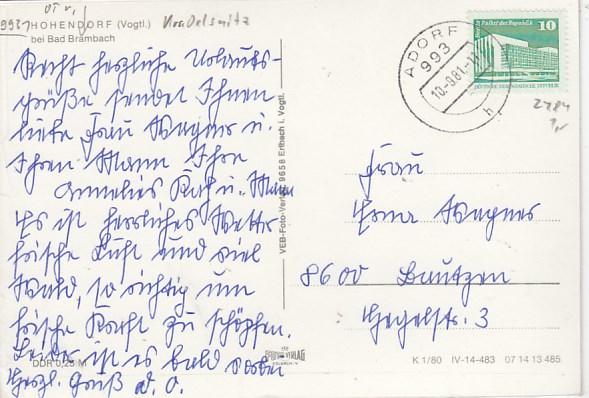 OT v.
9931 HOHENDORF (Vogtl.) Kr. Oelsnitz
bei Bad Brambach
Recht herzliche Urlaubs-
grüße sendet Ihnen
liebe Frau Wagner u.
Ihren Mann Ihre
Annelies Karl u. Mann
Es ist herrliches Wetter
frische Luft und viel
Wald, so richtig um
frische Kraft zu schöpfen.
Leider ist es bald vorbei
Herzl. Gruß d. O.
DDR 0,25 M
VEB-Foto-Verlag 9658 Erlbach i. Vogtl.
ADORF
993
10.-9.81.-1
h
Palast der Republik 10
DEUTSCHE DEMOKRATISCHE REPUBLIK
2484
Frau
Erna Wagner
8600 Bautzen
Hegelstr. 3
VERLAG
K 1/80 IV-14-483 07 14 13 485